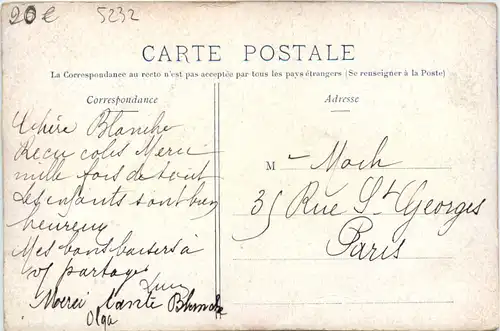 20€ 5232
CARTE POSTALE
La Correspondance au recto n'est pas acceptée par tous les pays étrangers (Se renseigner à la Poste)
Correspondance
Chère Blanche
Recu colis Merci
mille fois de tout
Les enfants sont bien
heureux
Mes bons baisers à
partager
Merci tante Blanche
Olga
Adresse
M Moch
35 Rue St Georges
Paris